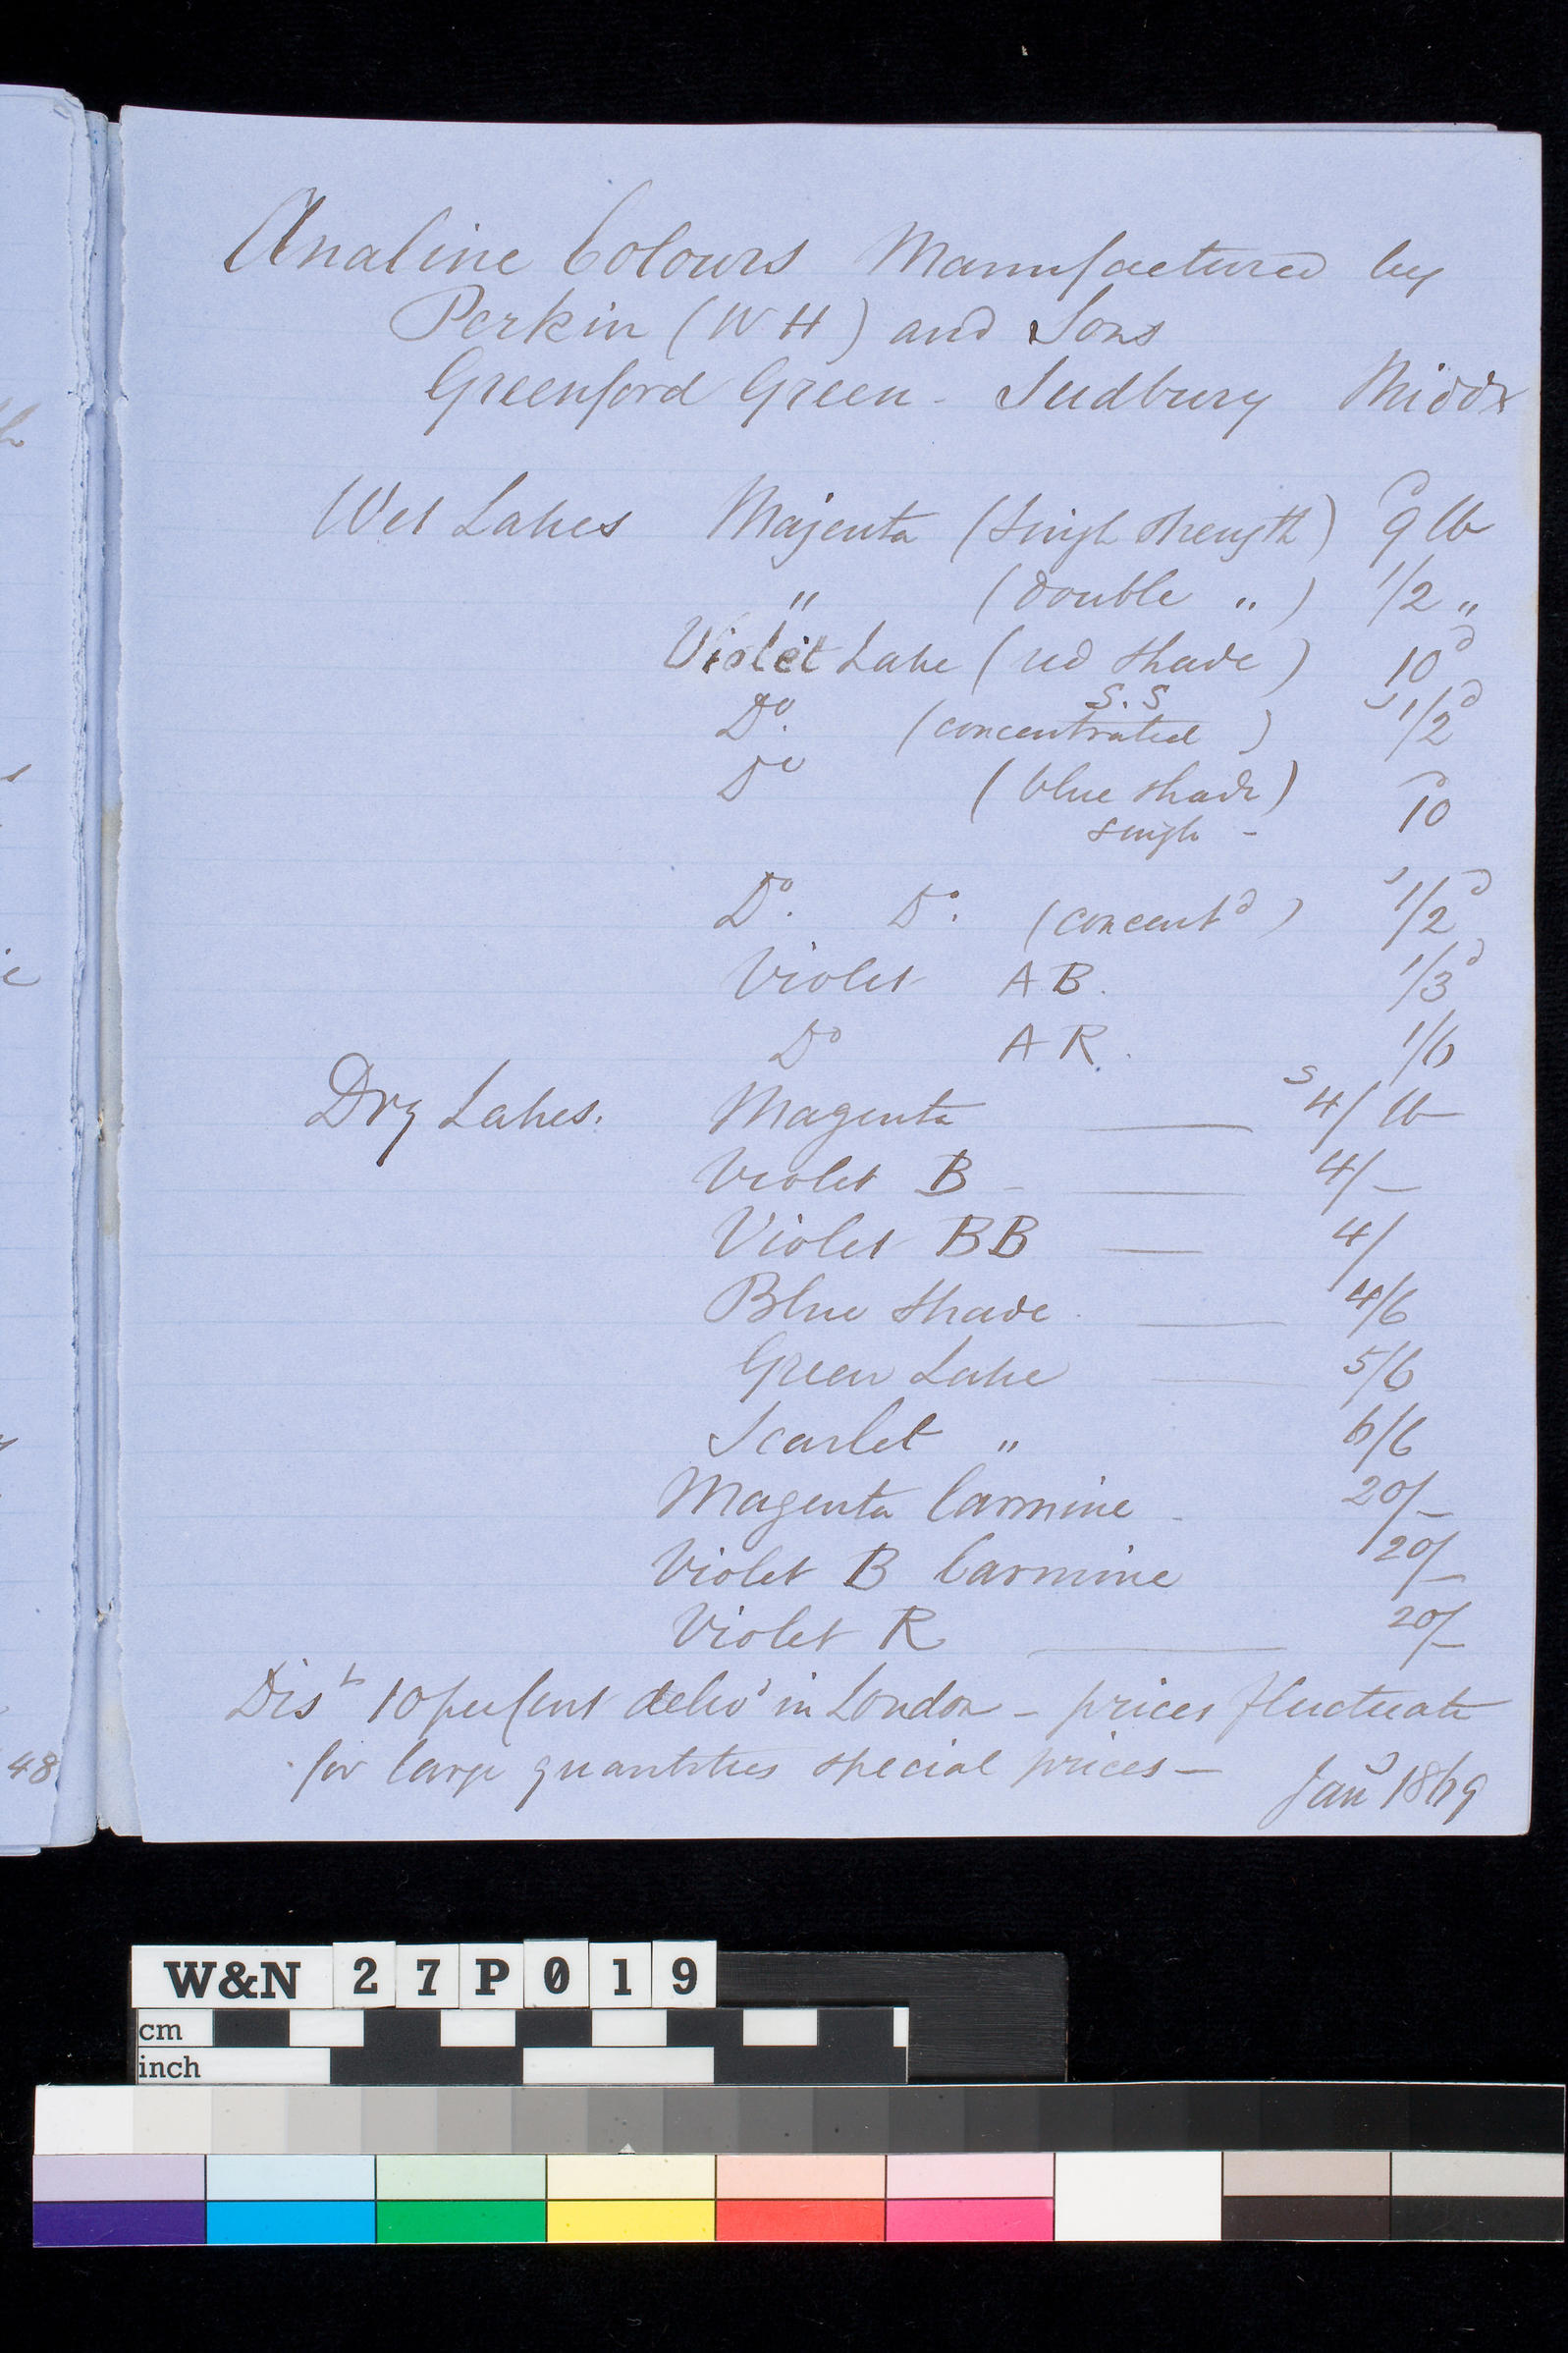 Analine Colours Manufactured by
Perkin (W H) and Sons
Greenford Green - Sudbury Middx
Wet Lakes Majenta (Single strength) 9d lb
" (double ") 1/2 "
Violet Lake (red shade) 10d
S.S
Do. (concentrated) s1/2d
Do (blue shade) 10d
single -
Do. Do. (concentd) s1/2d
Violet A B. 1/3d
Do A R. 1/6
Dry Lakes. Magenta — s4/ lb
Violet B - — 4/-
Violet BB — 4/
Blue Shade — 4/6
Green Lake — 5/6
Scarlet " 6/6
Magenta Carmine - 20/-
Violet B Carmine 20/-
Violet R — 20/-
Dist 10 per Cent delivd in London - prices fluctuate
for large quantities special prices -
Jany 1869
48
W&N 27P019
cm
inch